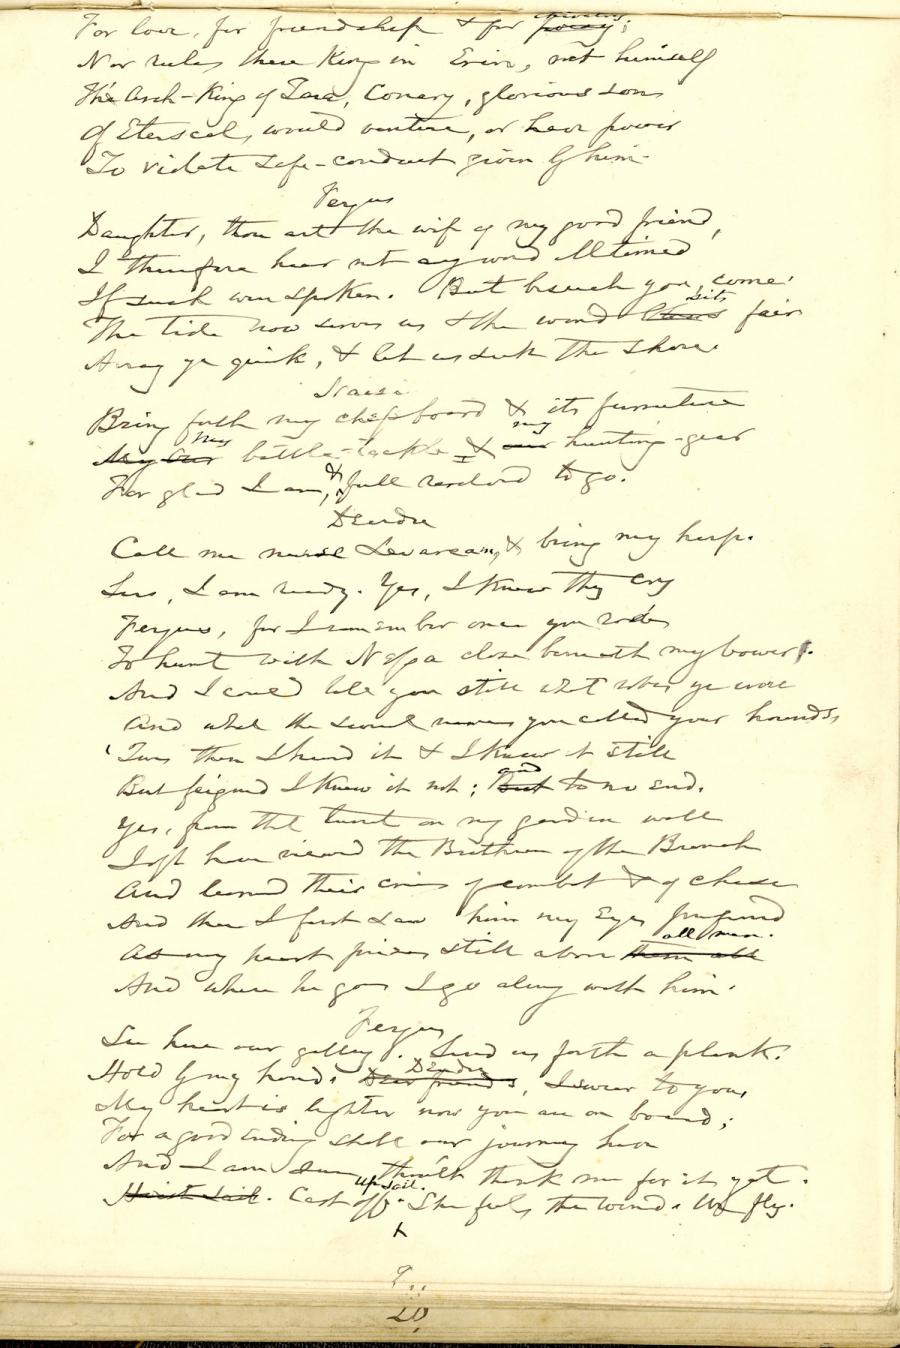 For love, for friendship & for
Nor rules there King in Erin, not himself
The Arch-King of Tara, Conary, glorious son
Of Eterscel, would venture, or have power
To violate safe-conduct given by him.
Fergus
Daughter, thou art the wife of my good friend,
I therefore hear not any word illtimed
If such were spoken. But beseech you, come.
sits
The tide now serves us & the wind fair
Away ye quick, & let us seek the shore
Naisi
Bring forth my chessboard & its furniture
my my
My our battle-tackle & our hunting-gear
For glad I am, & full resolved to go.
Deirdre
Call me nurse Levarcam, & bring my harp.
Sirs, I am ready. Yes, I knew thy cry
Fergus, for I remember once you rode
To hunt with Nessa close beneath my bower.
And I could tell you still what robes ye wore
And what the several names you called your hounds,
'Twas then I heard it & I knew it still
and
But feigned I knew it not; But to no end.
Yes, from the turret on my garden wall
I oft have viewed the Brethren of the Branch
And learned their cries of combat & of chase
And then I first saw him my Eyes preferred
all men.
As my heart prizes still above them all
And where he goes I go along with him.
Fergus
See here our galley. Send us forth a plank.
Deirdre
Hold by my hand. Dear friends, I swear to you,
My heart is lighter now you are on board;
For a good ending shall our journey have
And I am sure thou'lt thank me for it yet.
Up sail.
Hoist sail. Cast off. She feels the wind. We fly.